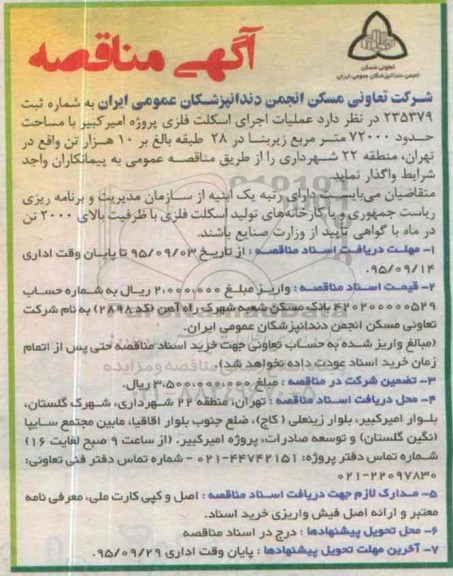 آگهی مناقصه
تعاونی مسکن
انجمن دندانپزشکان عمومی ایران
شرکت تعاونی مسکن انجمن دندانپزشکان عمومی ایران به شماره ثبت
۲۳۵۳۷۹ در نظر دارد عملیات اجرای اسکلت فلزی پروژه امیرکبیر با مساحت
حدود ۷۲۰۰۰ متر مربع زیربنا در ۲۸ طبقه بالغ بر ۱۰ هزار تن واقع در
تهران، منطقه ۲۲ شهرداری را از طریق مناقصه عمومی به پیمانکاران واجد
شرایط واگذار نماید.
متقاضیان می‌بایست دارای رتبه یک ابنیه از سازمان مدیریت و برنامه ریزی
ریاست جمهوری و یا کارخانه‌های تولید اسکلت فلزی با ظرفیت بالای ۲۰۰۰ تن
در ماه با گواهی تأیید از وزارت صنایع باشند.
۱- مهلت دریافت اسناد مناقصه : از تاریخ ۹۵/۰۹/۰۳ تا پایان وقت اداری
۹۵/۰۹/۱۴.
۲- قیمت اسناد مناقصه : واریز مبلغ ۲،۰۰۰،۰۰۰ ریال به شماره حساب
۴۲۰۲۰۰۰۰۰۵۲۹ بانک مسکن شعبه شهرک راه آهن (کد ۲۸۹۸) به نام شرکت
تعاونی مسکن انجمن دندانپزشکان عمومی ایران.
(مبالغ واریز شده به حساب تعاونی جهت خرید اسناد مناقصه حتی پس از اتمام
زمان خرید اسناد عودت داده نخواهد شد).
۳- تضمین شرکت در مناقصه : مبلغ ۳،۵۰۰،۰۰۰،۰۰۰ ریال.
۴- محل دریافت اسناد مناقصه : تهران، منطقه ۲۲ شهرداری، شهرک گلستان،
بلوار امیرکبیر، بلوار زینعلی (کاج)، ضلع جنوب بلوار اقاقیا، مابین مجتمع سایپا
(نگین گلستان) و توسعه صادرات، پروژه امیرکبیر. (از ساعت ۹ صبح لغایت ۱۶)
شماره تماس دفتر پروژه: ۴۴۷۴۲۱۵۱-۰۲۱ - شماره تماس دفتر فنی تعاونی:
۲۲۰۹۷۸۳۰-۰۲۱
۵- مدارک لازم جهت دریافت اسناد مناقصه : اصل و کپی کارت ملی، معرفی نامه
معتبر و ارائه اصل فیش واریزی خرید اسناد.
۶- محل تحویل پیشنهادها : درج در اسناد مناقصه
۷- آخرین مهلت تحویل پیشنهادها : پایان وقت اداری ۹۵/۰۹/۲۹.